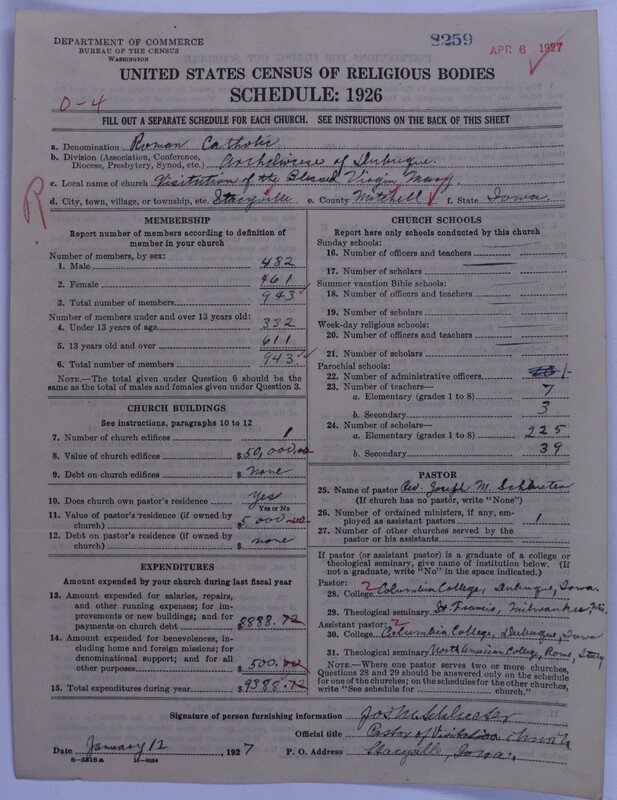 DEPARTMENT OF COMMERCE
BUREAU OF THE CENSUS
WASHINGTON
8259
APR 6 1927
UNITED STATES CENSUS OF RELIGIOUS BODIES
SCHEDULE: 1926
0-4
FILL OUT A SEPARATE SCHEDULE FOR EACH CHURCH. SEE INSTRUCTIONS ON THE BACK OF THIS SHEET
a. Denomination Roman Catholic
b. Division (Association, Conference, Diocese, Presbytery, Synod, etc.) Archdiocese of Dubuque.
c. Local name of church Visitation of the Blessed Virgin Mary.
d. City, town, village, or township, etc. Stacyville e. County Mitchell f. State Iowa.
R
MEMBERSHIP
Report number of members according to definition of member in your church
Number of members, by sex:
1. Male 482
2. Female 461
3. Total number of members 943
Number of members under and over 13 years old:
4. Under 13 years of age 332
5. 13 years old and over 611
6. Total number of members 943
NOTE.—The total given under Question 6 should be the same as the total of males and females given under Question 3.
CHURCH BUILDINGS
See instructions, paragraphs 10 to 12
7. Number of church edifices 1
8. Value of church edifices $50,000.00
9. Debt on church edifices $ none
10. Does church own pastor's residence Yes
Yes or No
11. Value of pastor's residence (if owned by church) $5,000.00
12. Debt on pastor's residence (if owned by church) $ none
EXPENDITURES
Amount expended by your church during last fiscal year
13. Amount expended for salaries, repairs, and other running expenses; for improvements or new buildings; and for payments on church debt $8888.72
14. Amount expended for benevolences, including home and foreign missions; for denominational support; and for all other purposes $500.00
15. Total expenditures during year $9388.72
CHURCH SCHOOLS
Report here only schools conducted by this church
Sunday schools:
16. Number of officers and teachers
17. Number of scholars
Summer vacation Bible schools:
18. Number of officers and teachers
19. Number of scholars
Week-day religious schools:
20. Number of officers and teachers
21. Number of scholars
Parochial schools:
22. Number of administrative officers 1
23. Number of teachers—
a. Elementary (grades 1 to 8) 7
b. Secondary 3
24. Number of scholars—
a. Elementary (grades 1 to 8) 225
b. Secondary 39
PASTOR
25. Name of pastor Rev. Joseph M.
(If church has no pastor, write "None")
26. Number of ordained ministers, if any, employed as assistant pastors 1
27. Number of other churches served by the pastor or his assistants
If pastor (or assistant pastor) is a graduate of a college or theological seminary, give name of institution below. (If not a graduate, write "No" in the space indicated.)
Pastor: 2
28. College Columbia College, Dubuque, Iowa.
29. Theological seminary St. Francis, Milwaukee, Wis.
Assistant pastor: 2
30. College Columbia College, Dubuque, Iowa
31. Theological seminary North American College, Rome, Italy
NOTE.—Where one pastor serves two or more churches, Questions 28 and 29 should be answered only on the schedule for one of the churches; on the schedules for the other churches, write "See schedule for church."
Signature of person furnishing information Jos. M.
Official title Pastor of Visitation Church
Date January 12 1927 P. O. Address Stacyville, Iowa.